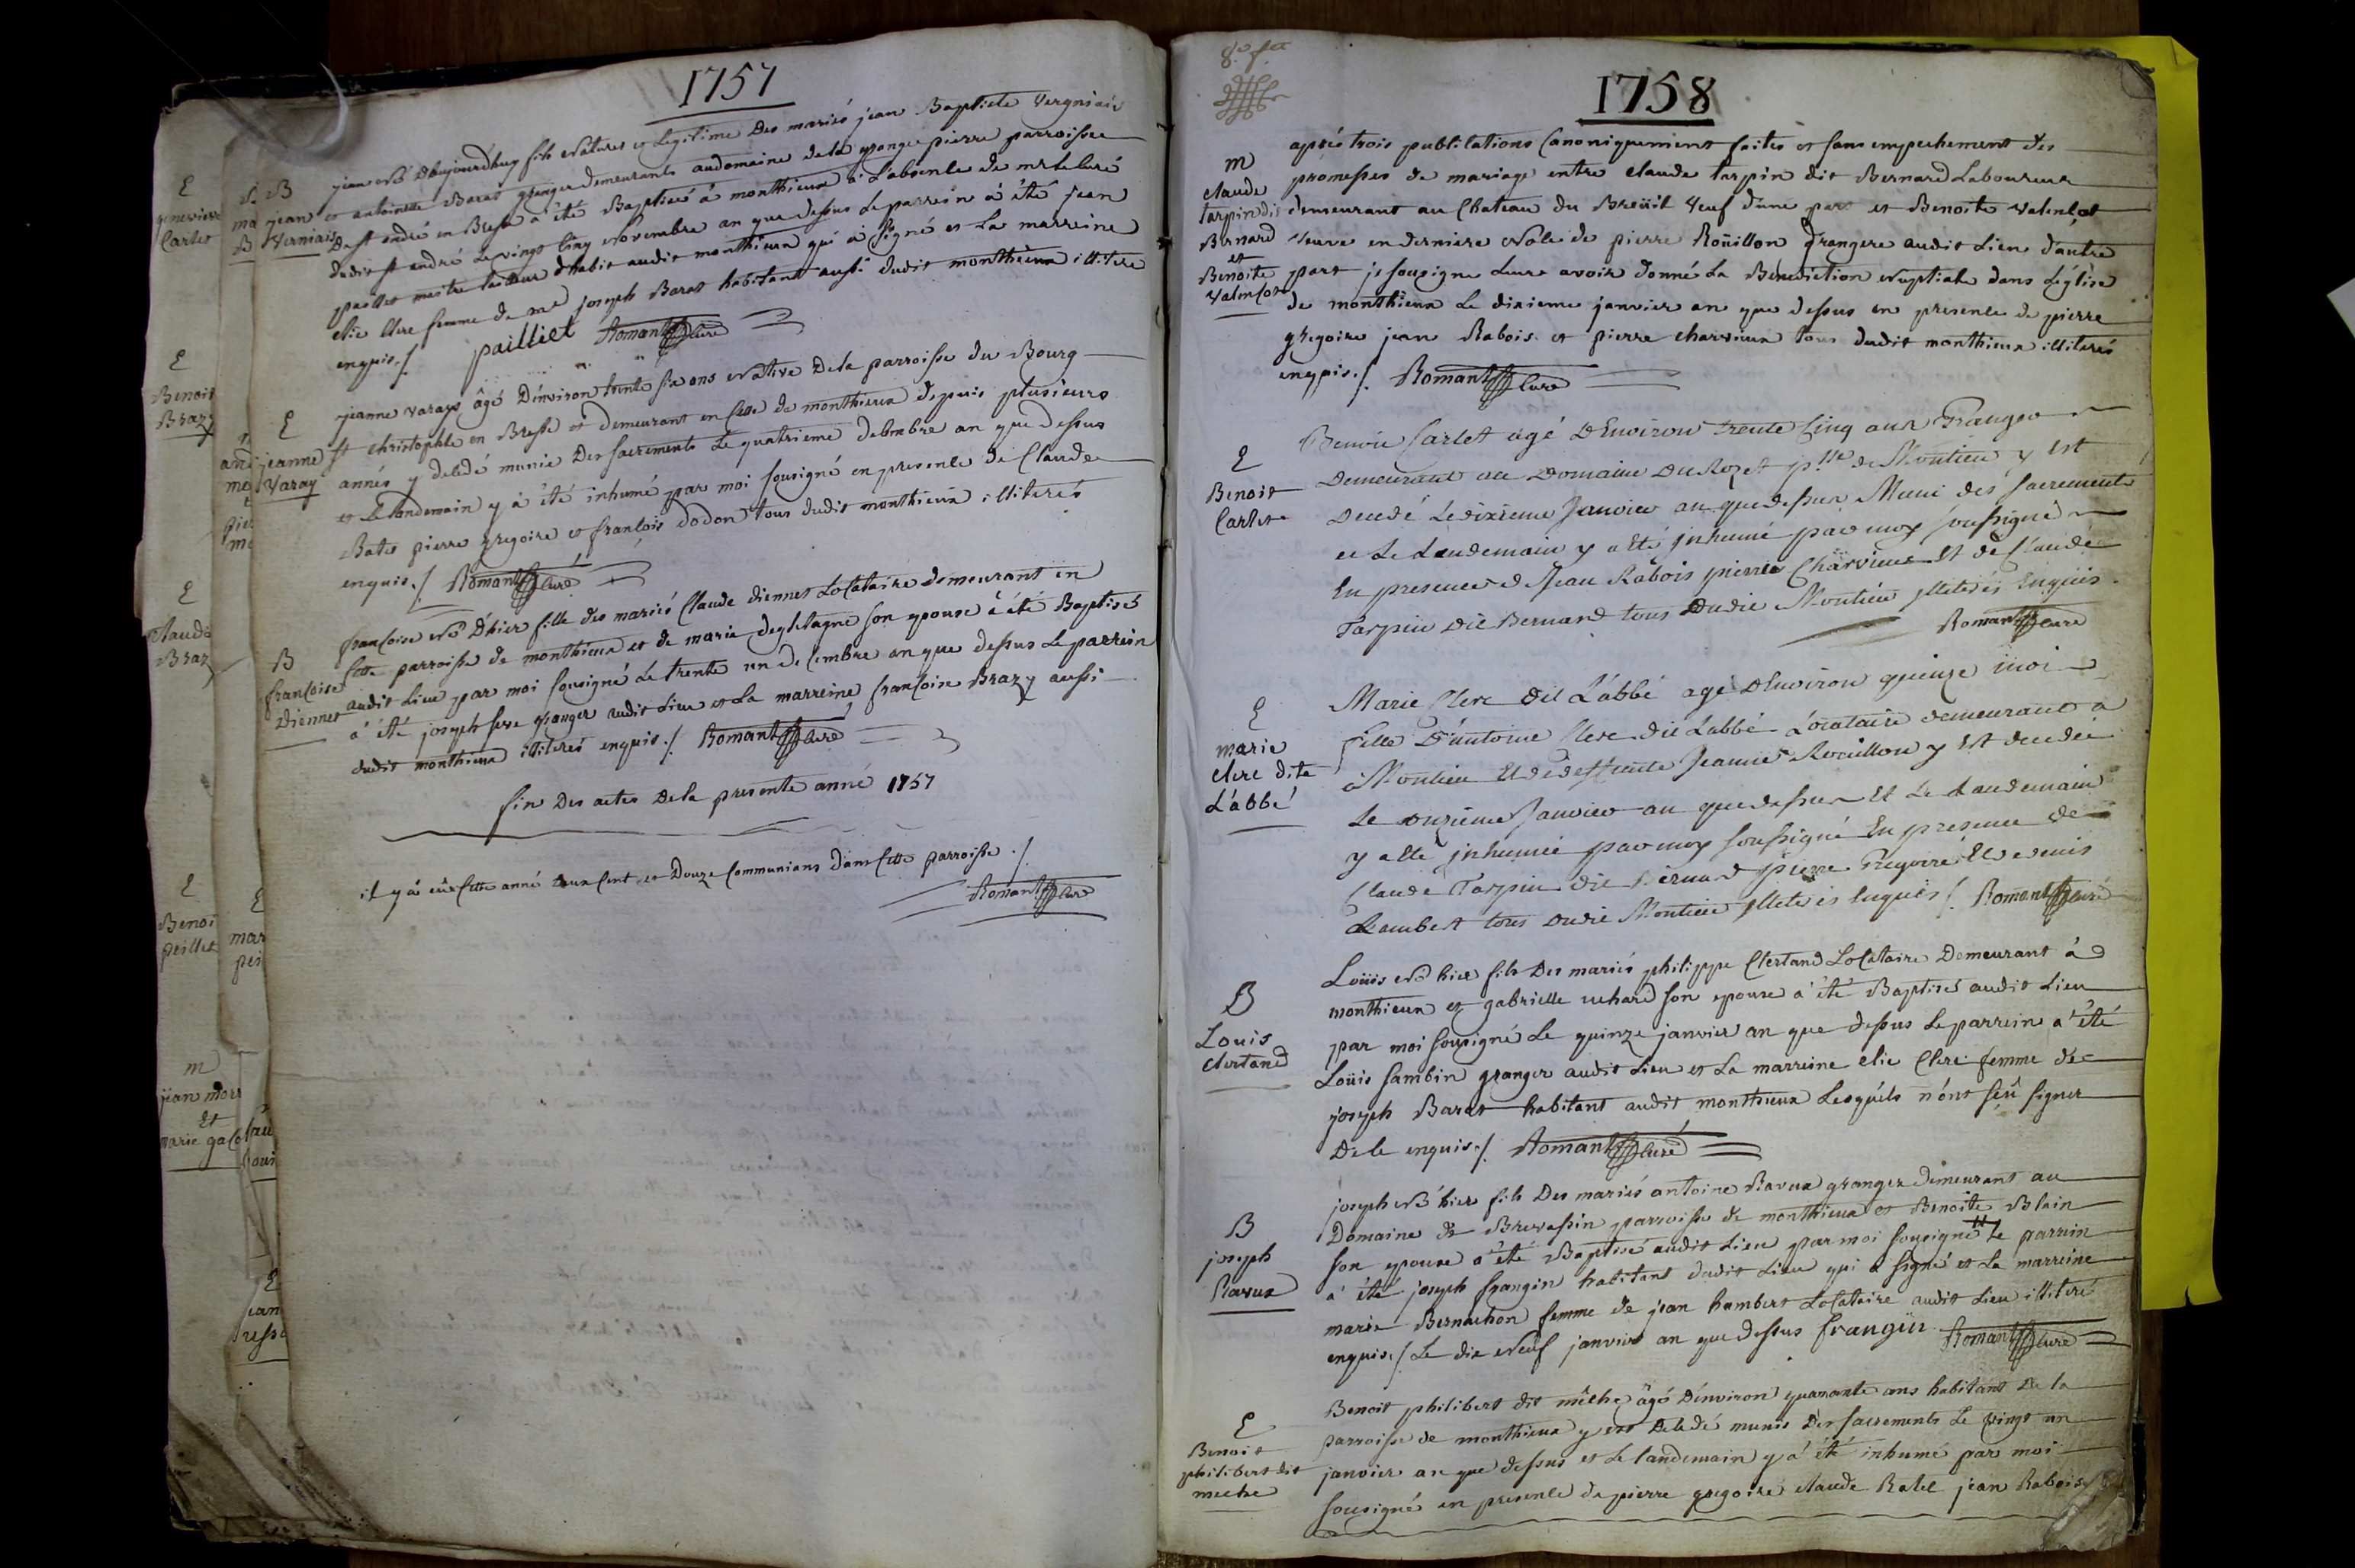 1757
B
jean
Verniais
jean né D'aujourdhuy fils naturel et Legitime Des mariés jean Baptiste Vergniais
et antoinette Barat granger demeurants audomaine dela grange pierre parroisse
De st andré en Bresse à été Baptisé à monthieux à L'absence de mr le curé
dudit st andré Le vingt Cinq Novembre an que dessus Le parrein à été jean
paillet maitre tailleur d'habit audit monthieux qui à signé et La marreine
elie Clere femme de me joseph Barat habitant aussi dudit monthieux illiteré
enquis ./. pailliet Romant Curé
E
jeanne
Varay
jeanne varays âgé D'environ trente six ans Native Dela parroisse du Bourg
st christophle en Bresse et demeurant en Cette de monthieux depuis plusieurs
annés y decedé munie Des sacrements Le quatrieme decembre an que dessus
et Le landemain y à été inhumé par moi sousigné en presence de Claude
Batet pierre gregoire et françois dodon tous dudit monthieux illiterés
enquis ./. Romant Curé
B
françoise
Diennet
françoise né D'hier fille des mariés Claude diennet Locataire demeurant en
Cette parroisse de monthieux et de marie son epouse à été Baptisés
audit Lieu par moi sousigné Le trente un decembre an que dessus Le parrein
à été joseph granger audit Lieu et La marreine françoise Brazy aussi
dudit monthieux illiterés enquis ./. Romant Curé
fin Des actes Dela presente anné 1757
il y à eûe Cette anné deux Cent et Douze Communians dans Cette parroisse ./.
Romant Curé
E
genevieve
Carlet
E
Benoit
Brazy
E
Claude
Braz
E
Benoi
peillet
m
jean
Et
marie
1758
m
Claude
tarpin dit
Bernard
et
Benoite
Valencot
après trois publications Canoniquement faites et sans empechement des
promesses de mariage entre Claude tarpin dit Bernard Laboureur
demeurant au Chateau du Breüil Veuf d'une part et Benoite Valencot
veuve en derniere Nole de pierre Roüillon grangere audit Lieu d'autre
part je sousigne Leurs avoir donné La Benediction Nuptiale dans L'église
de monthieux Le dixieme janvier an que dessus en presence de pierre
gregoire jean Rabois et pierre charvieux tous dudit monthieux illiterés
enquis ./. Romant Curé
E
Benoit
Carlet
Benoit Carlet agé d'Environ trente Cinq ans Granger
demeurant au Domaine Du Rozet psse de Montieu y Est
decedé Ledixieme Janvier an quedessus Muni des sacrements
et Le Landemain y a Eté jnhumé par moy soussigné
En presence de Jean Rabois pierre Charvieux Et de Claude
Tarpin dit Bernard tous Dudit Montieu jlleterés Enquis.
Romant Curé
E
marie
Clere dite
L'abbé
Marie Clere dit L'abbé agé d'Environ quinze moi
fille D'antoine Clere dit L'abbé Locataire demeurant a
Montieu Et dedeffunte Jeanne Rouillon y Est decedée
Le onzieme Janvier an quedessus Et Le Landemain
y a Eté jnhumée par moy soussigné En presence de
Claude Tarpin dit Bernard pierre Gregoire Et denis
Lambert tous dudit Montieu jlleterés Enquis ./. Romant Curé
B
Louis
Clertand
Loüis né hier fils Des mariés philippe Clertand Locataire Demeurant à
monthieux et gabrielle richard son epouse à été Baptisés audit Lieu
par moi sousigné Le quinze janvier an que dessus Le parrein à été
Loüis sambin granger audit Lieu et La marreine elie Clere femme de
joseph Barat habitant audit monthieux Lesquels n'ont sçû signer
De ce enquis ./. Romant Curé
B
joseph
Ravux
joseph né hier fils Des mariés antoine Ravux granger demeurant au
Domaine de Brevassin parroisse de monthieux et Benoite Blain
son epouse à été Baptisé audit Lieu par moi sousigné Le parrein
à été joseph frangin habitant dudit Lieu qui à signé et La marreine
marie Bernachon femme de jean humbert Locataire audit Lieu illiteré
enquis ./. Le dix Neuf janvier an que dessus frangin Romant Curé
E
Benoit
philibert dit
miche
Benoit philibert dit miche âgé D'environ quarante ans habitant De la
parroisse de monthieux y est Decedé munis Des sacrements Le vingt un
janvier an que dessus et Le landemain y à été inhumé par moi
sousigné en presence de pierre gregoire Claude Batet jean Rabois